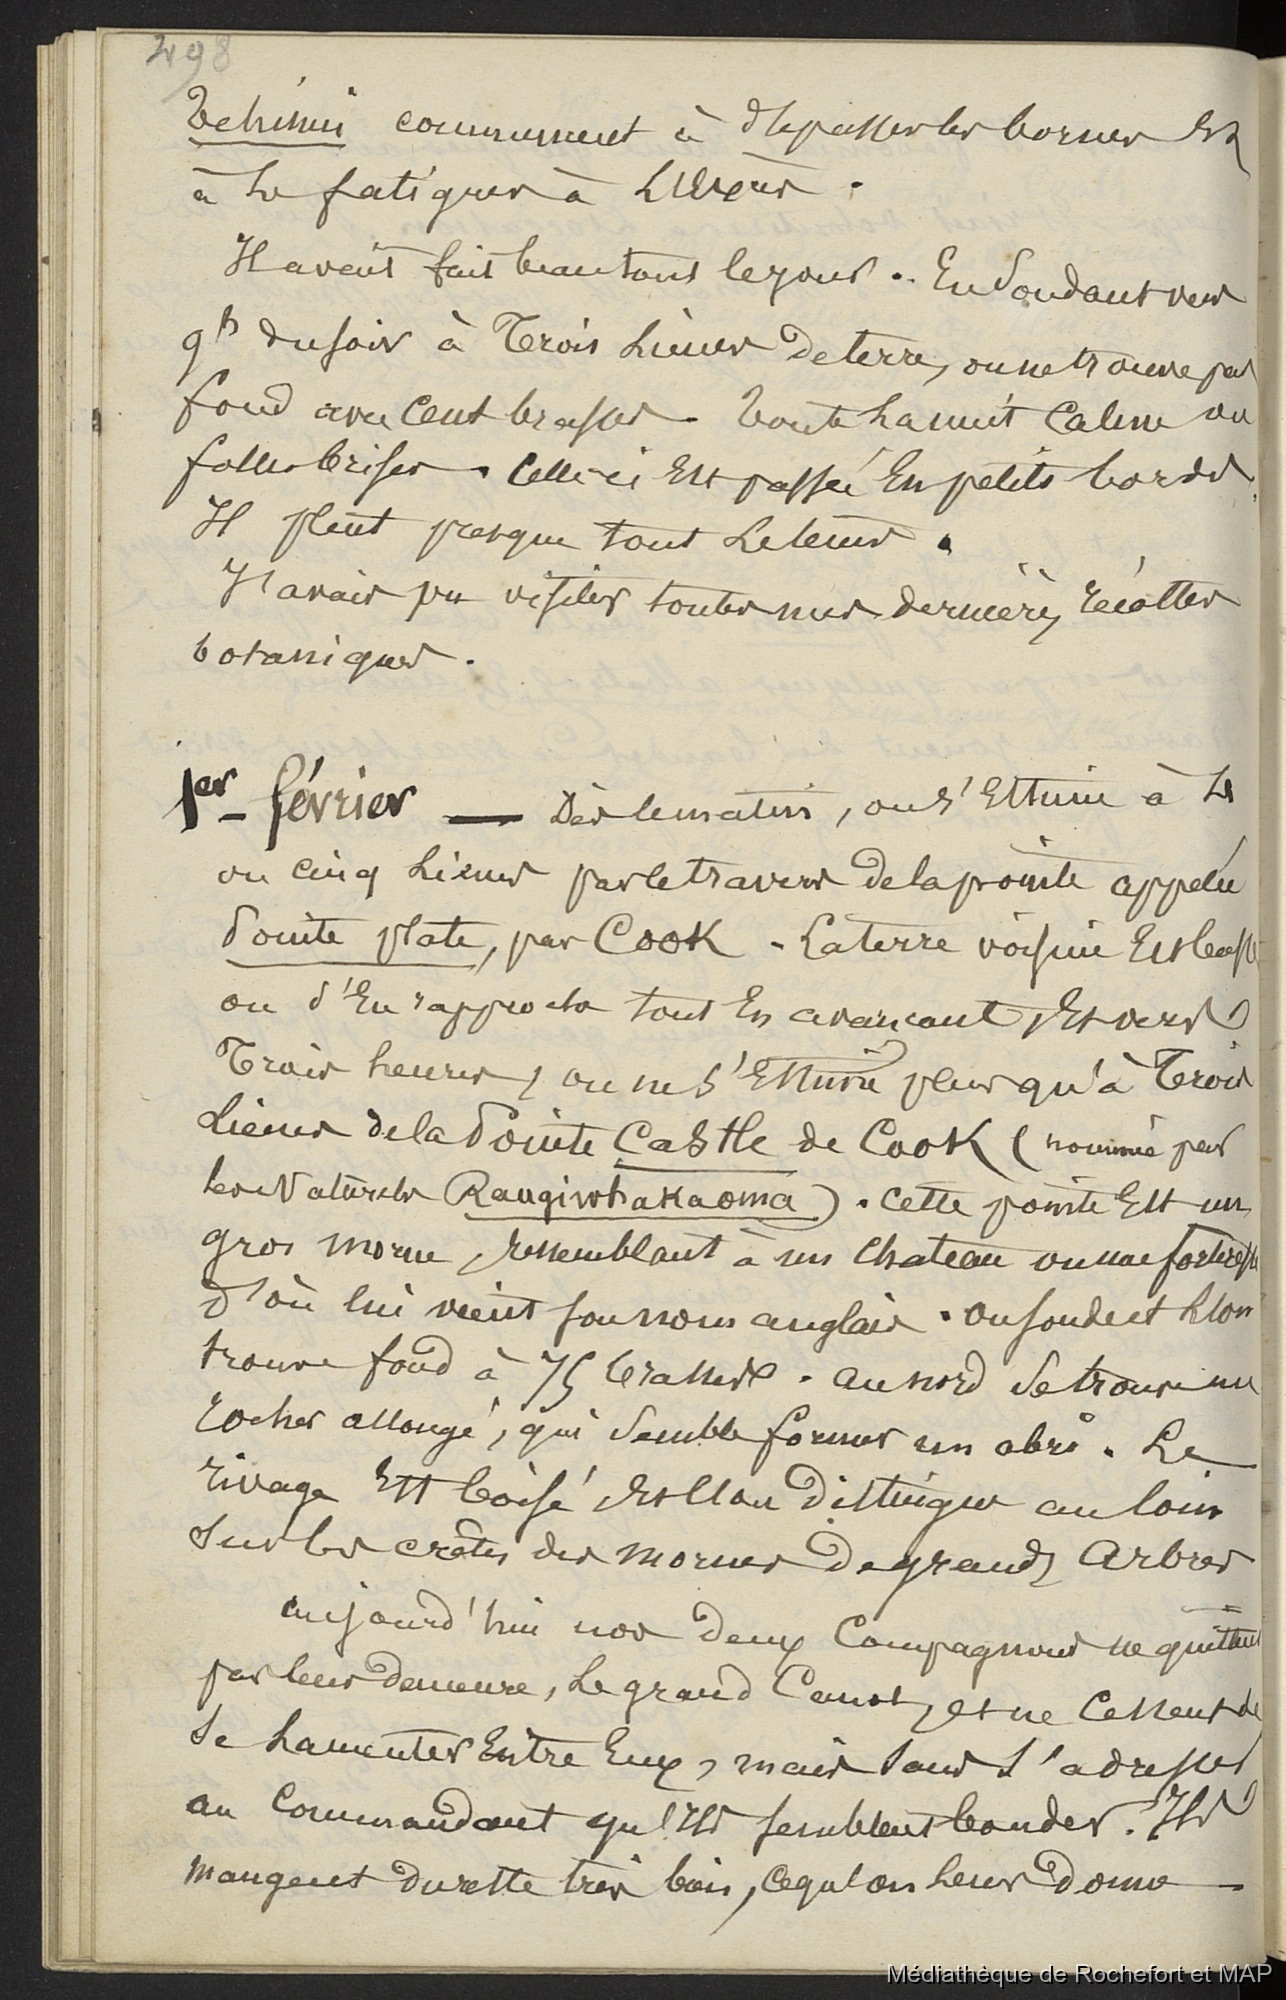 498
Tehinui commencent à dépasser les bornes Et
à le fatiguer à l'Excès.
Il avait fait beau tout le jour. En sondant vers
9h du soir à Trois Lieues de terre, on ne trouve pas
fond avec Cent brasses. Toute la nuit Calme ou
folles brises. Celle-ci Est passée En petits bords.
Il pleut presque tout le tems.
J'avais pu visiter toutes mes dernières récoltes
botaniques.
1er février — Dès le matin, on s'Estime à
ou cinq Lieues par le travers de la pointe appelée
Pointe plate, par Cook. La terre voisine Est basse
on s'En rapproche tout En avançant, Et vers
Trois heures, on ne s'Estime plus qu'à Trois
Lieues de la Pointe Castle de Cook (nommée par
les Naturels Rangiwhakaoma). Cette pointe Est un
gros morne, ressemblant à un Chateau ou une forteresse
d'où lui vient son nom anglais. On sonde et l'on
trouve fond à 75 brasses. au nord se trouve un
rocher allongé, qui semble former un abri. Le
rivage Est boisé, Et l'on distingue au loin
sur les crêtes des mornes de grands Arbres
aujourd'hui nos deux Compagnons ne quittent
pas leur demeure, le grand Canot, et ne Cessent de
se lamenter Entre Eux, mais sans s'adresser
au Commandant qu'Ils semblent bouder. Ils
mangent du reste très bien, ce qu'on leur donne
Médiathèque de Rochefort et MAP